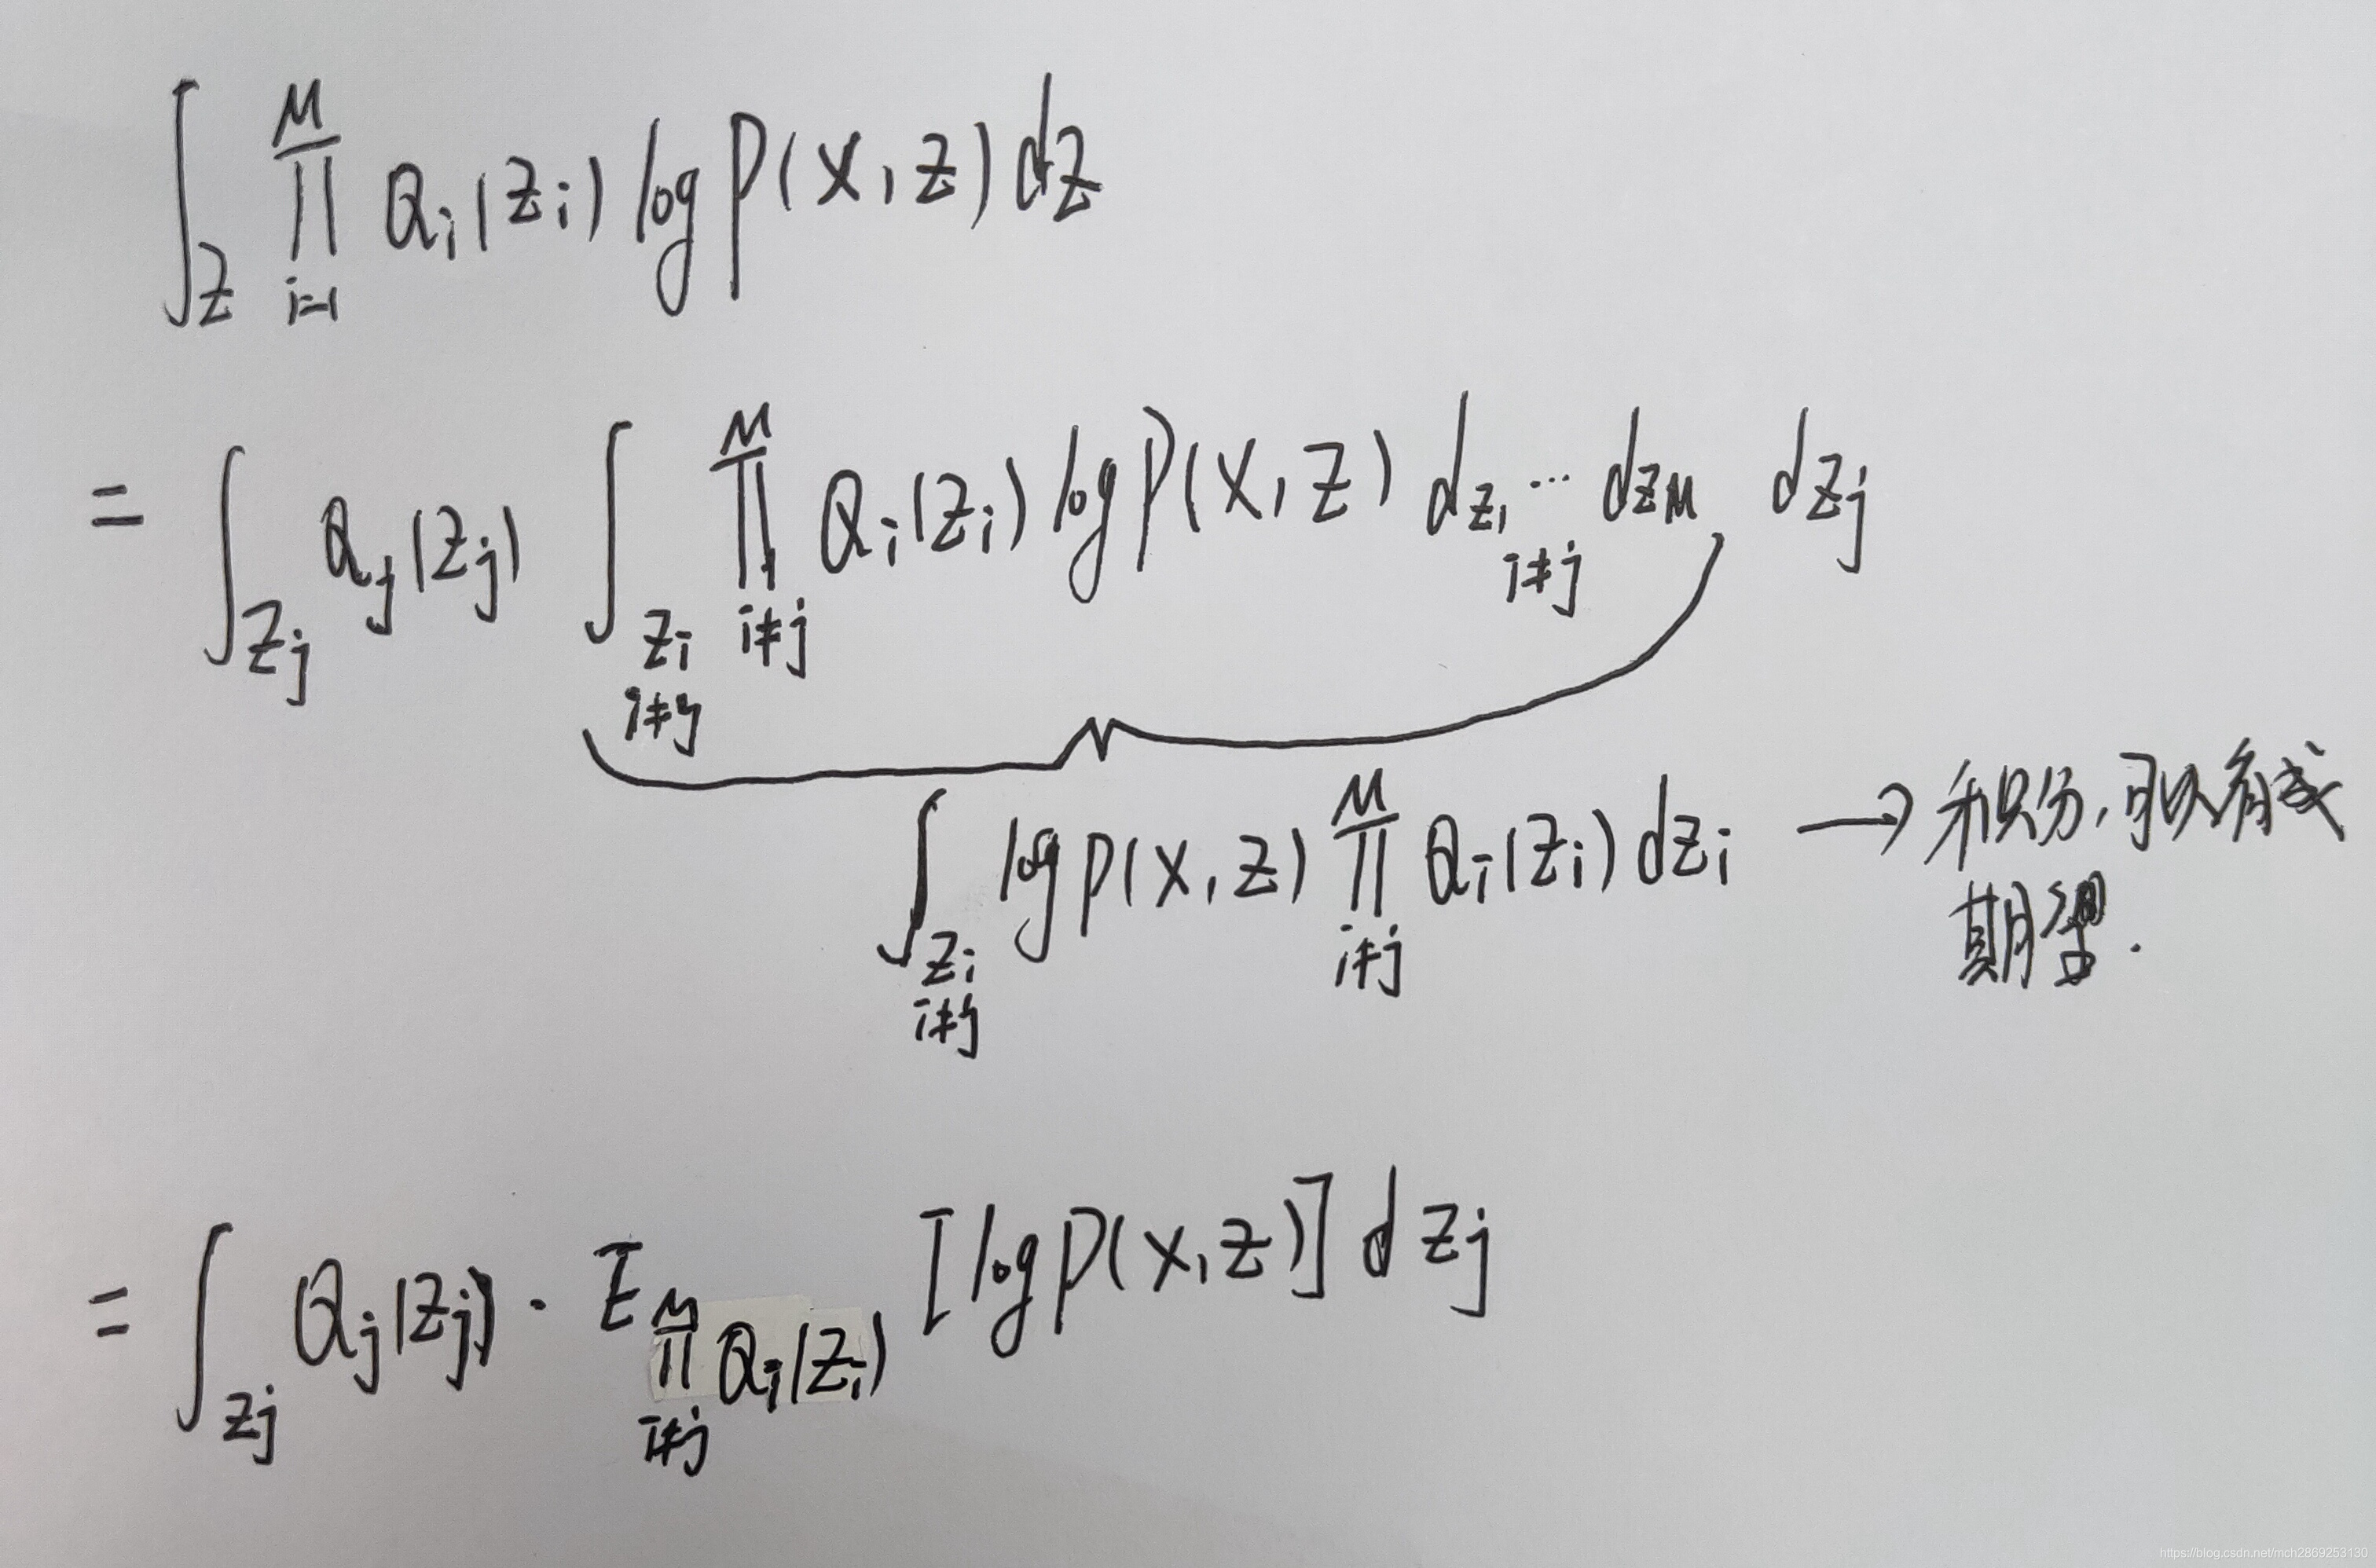 ∫_Z ∏_{i=1}^{M} Q_i(Z_i) log P(X, Z) dZ
= ∫_{Z_j} Q_j(Z_j) ∫_{Z_i, i≠j} ∏_{i≠j}^{M} Q_i(Z_i) log P(X, Z) dZ_1 ⋯ dZ_M (i≠j) dZ_j
∫_{Z_i, i≠j} log P(X, Z) ∏_{i≠j}^{M} Q_i(Z_i) dZ_i → 积分,可以看成
期望.
= ∫_{Z_j} Q_j(Z_j) · E_{∏_{i≠j}^{M} Q_i(Z_i)} [log P(X, Z)] dZ_j
https://blog.csdn.net/mch2869253130